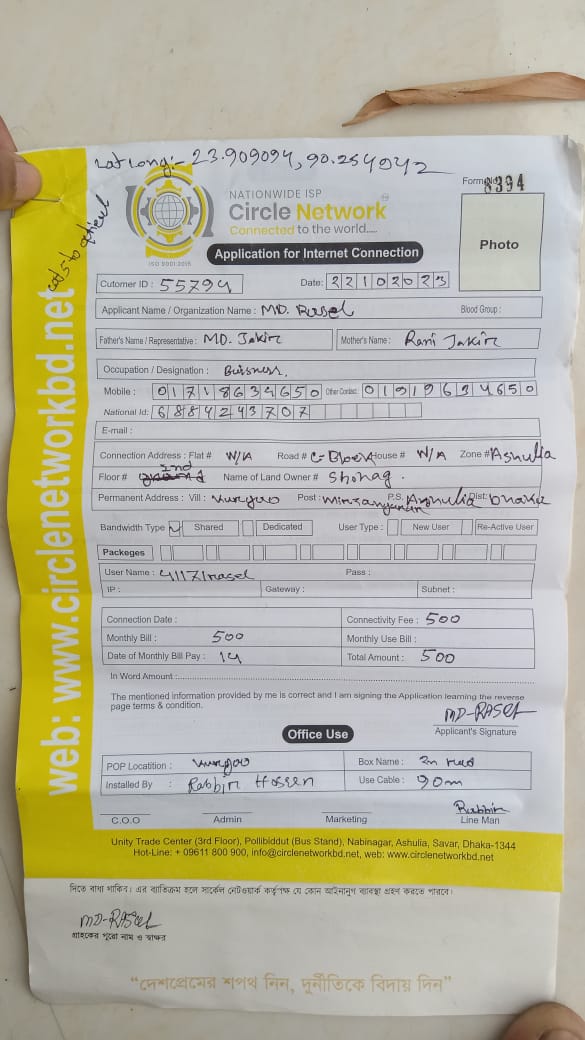 Lat Long:- 23.909094, 90.254942
Form No: 8394
cat5 to optical
NATIONWIDE ISP
Circle Network
Connected to the world....
ISO 9001:2015
Application for Internet Connection
Photo
Cutomer ID : 55794
Date: 22102023
Applicant Name / Organization Name : MD. Rasel Blood Group :
Father's Name / Representative : MD. Jakir Mother's Name : Rani Jakir
Occupation / Designation : Buisness.
Mobile : 01718634650 Other Contact : 01919634650
National Id: 6884243707
E-mail :
Connection Address : Flat # N/A Road # C-Block House # N/A Zone # Ashulia
Floor # 2nd Name of Land Owner # Shohag.
Permanent Address : Vill : Post : P.S. Ashulia Dist: Dhaka
Bandwidth Type Shared Dedicated User Type : New User Re-Active User
Packeges
User Name : 41171rasel Pass :
IP : Gateway : Subnet :
Connection Date : Connectivity Fee : 500
Monthly Bill : 500 Monthly Use Bill :
Date of Monthly Bill Pay : 14 Total Amount : 500
In Word Amount :
The mentioned information provided by me is correct and I am signing the Application learning the reverse
page terms & condition.
MD-RASEL
Applicant's Signature
Office Use
POP Locatition : Box Name :
Installed By : Rabbir Hossen Use Cable : 90m
Rabbir
C.O.O Admin Marketing Line Man
Unity Trade Center (3rd Floor), Pollibiddut (Bus Stand), Nabinagar, Ashulia, Savar, Dhaka-1344
Hot-Line: + 09611 800 900, info@circlenetworkbd.net, web: www.circlenetworkbd.net
web: www.circlenetworkbd.net
দিতে বাধ্য থাকিব। এর ব্যতিক্রম হলে সার্কেল নেটওয়ার্ক কর্তৃপক্ষ যে কোন আইনানুগ ব্যবস্থা গ্রহণ করতে পারবে।
MD-RASEL
গ্রাহকের পুরো নাম ও স্বাক্ষর
“দেশপ্রেমের শপথ নিন, দুর্নীতিকে বিদায় দিন”